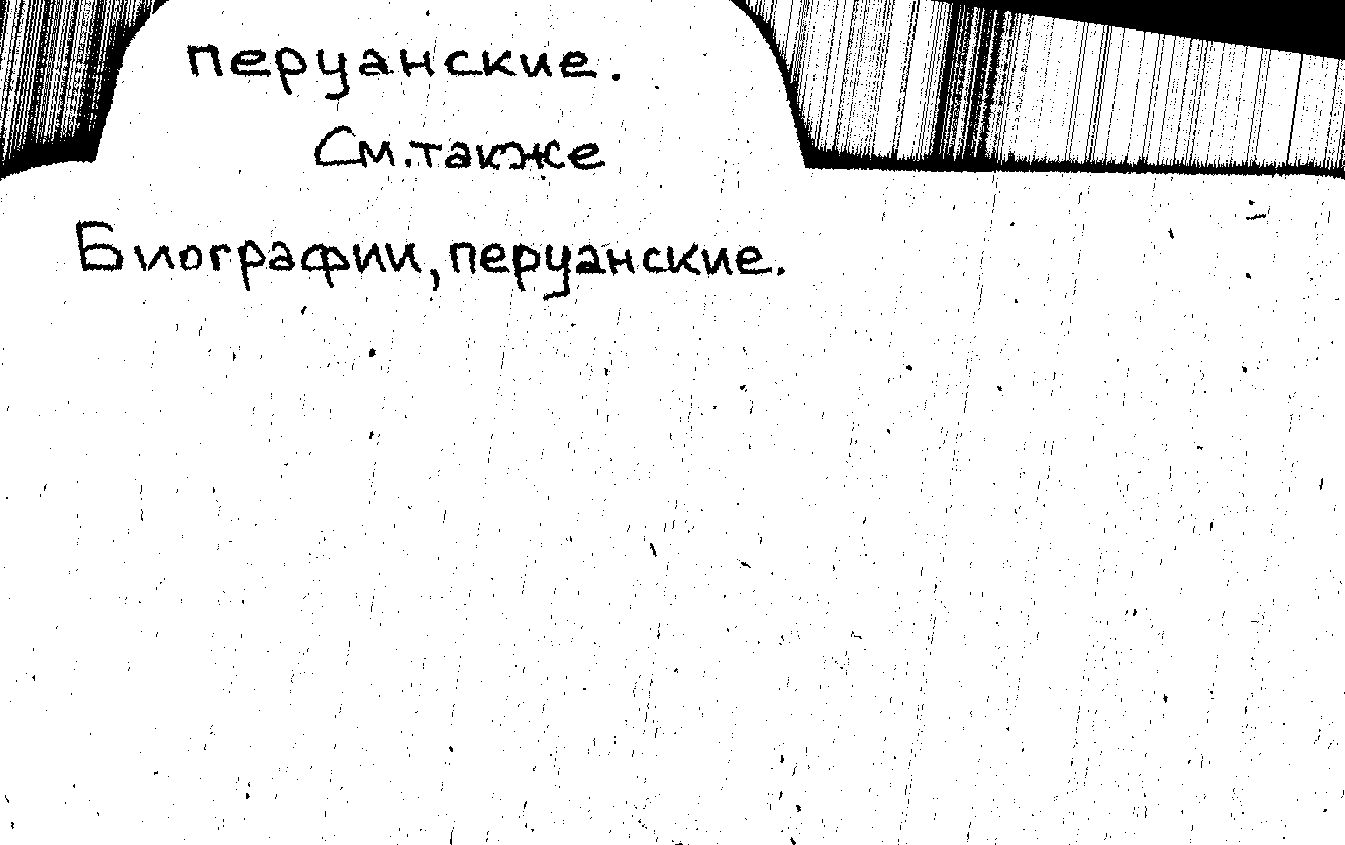 перуанские.
См.также
Биографии, перуанские.